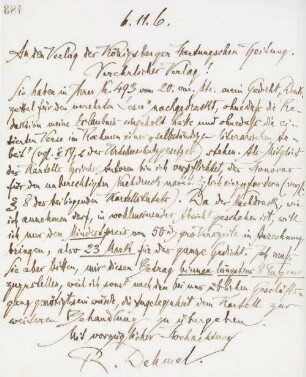 188
6.11.6.
An den Verlag der Königsberger Hartungschen Zeitung.
Verehrlicher Verlag!
Sie haben in Ihrer No 493 vom 20. v. Mts. mein Gedicht „Denk-
zettel für den verehrten Leser“ nachgedruckt, ohne daß die Re-
daktion meine Erlaubnis eingeholt hatte und ohne daß die zi-
tierten Verse im Rahmen einer selbständigen literarischen Ar-
beit (vgl. § 19, 2 der Urheberschutzgesetze) stehen. Als Mitglied
des Kartells lyrischer Autoren bin ich verpflichtet, das Honorar
für den unberechtigten Nachdruck einzufordern (vgl.
§ 8 des beiliegenden Kartellstatuts). Da der Nachdruck, wie
ich annehmen darf, in wohlwollender Absicht geschehen ist, will
ich nur den Mindestpreis von 50 d. pro Verszeile in Anrechnung
bringen, also 23 Mark für das ganze Gedicht. Ich muß
Sie aber bitten, mir diesen Betrag binnen längstens 8 Tagen
zuzustellen, weil ich sonst nach den bei uns üblichen Geschäfts-
gang genötigt sein würde, die Angelegenheit dem Kartell zur
weiteren Behandlung zu übergeben.
Mit vorzüglicher Hochachtung
R. Dehmel.